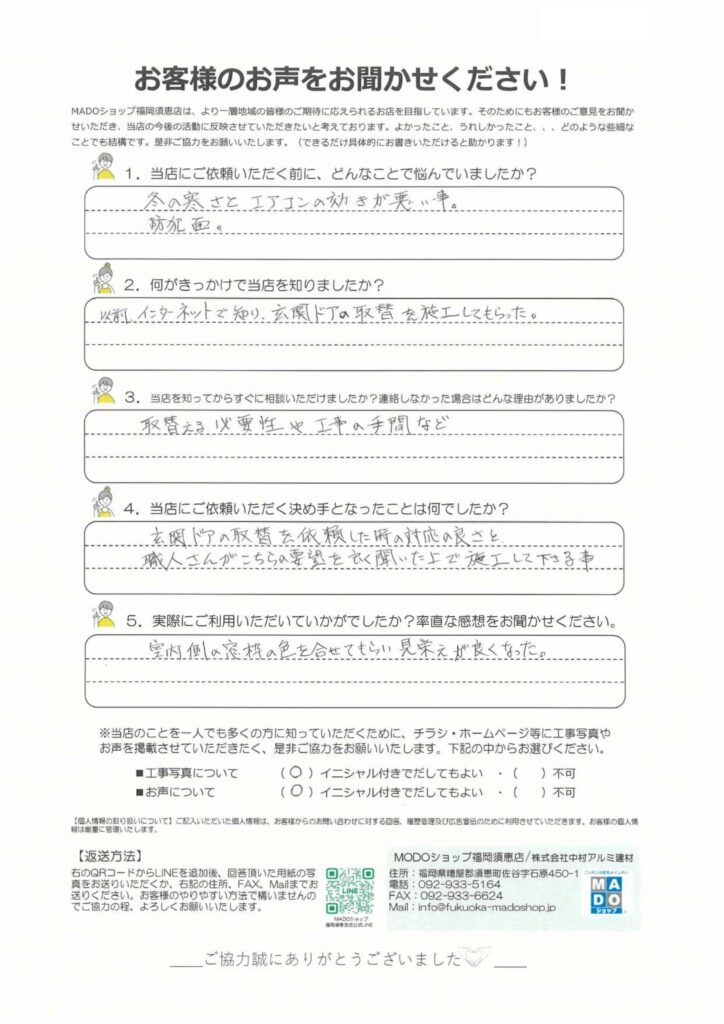 お客様のお声をお聞かせください！
MADOショップ福岡須恵店は、より一層地域の皆様のご期待に応えられるお店を目指しています。そのためにもお客様のご意見をお聞か
せいただき、当店の今後の活動に反映させていただきたいと考えております。よかったこと、うれしかったこと、、、どのような些細な
ことでも結構です。是非ご協力をお願いいたします。（できるだけ具体的にお書きいただけると助かります！）
1．当店にご依頼いただく前に、どんなことで悩んでいましたか？
冬の寒さと エアコンの効きが悪い事。
防犯面。
2．何がきっかけで当店を知りましたか？
以前 インターネットで知り、玄関ドアの取替を施工してもらった。
3．当店を知ってからすぐに相談いただけましたか？連絡しなかった場合はどんな理由がありましたか？
取替える必要性や工事の手間など
4．当店にご依頼いただく決め手となったことは何でしたか？
玄関ドアの取替を依頼した時の対応の良さと
職人さんがこちらの要望を良く聞いた上で施工して下さる事
5．実際にご利用いただいていかがでしたか？率直な感想をお聞かせください。
室内側の窓枠の色を合せてもらい見栄えが良くなった。
※当店のことを一人でも多くの方に知っていただくために、チラシ・ホームページ等に工事写真や
お声を掲載させていただきたく、是非ご協力をお願いいたします。下記の中からお選びください。
■工事写真について （○）イニシャル付きでだしてもよい ・（ ）不可
■お声について （○）イニシャル付きでだしてもよい ・（ ）不可
【個人情報の取り扱いについて】ご記入いただいた個人情報は、お客様からのお問い合わせに対する回答、履歴管理及び広告宣伝のために利用させていただきます。お客様の個人情
報は厳重に管理いたします。
【返送方法】
右のQRコードからLINEを追加後、回答頂いた用紙の写
真をお送りいただくか、右記の住所、FAX、Mailまでお
送りください。お客様のやりやすい方法で構いませんの
でご協力の程、よろしくお願いいたします。
LINE
MADOショップ
福岡須恵支店公式LINE
MODOショップ福岡須恵店/株式会社中村アルミ建材
住所：福岡県糟屋郡須恵町佐谷字石原450-1
電話：092-933-5164
FAX：092-933-6624
Mail：info@fukuoka-madoshop.jp
MADO
ショップ
ご協力誠にありがとうございました